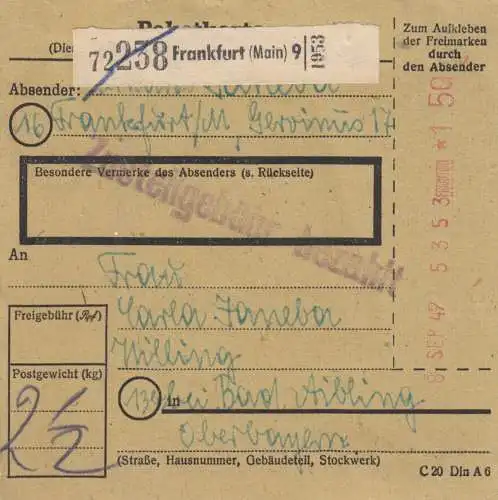 Paketkarte
(Die
72 258 Frankfurt (Main) 9 1953
Zum Aufkleben
der Freimarken
durch
den Absender
Absender: Janeba
16 Frankfurt/M, Gervinus 17
Zustellgebühr bezahlt
Besondere Vermerke des Absenders (s. Rückseite)
An
Frau
Carla Janeba
Willing
13b bei Bad Aibling
in
Oberbayern
(Straße, Hausnummer, Gebäudeteil, Stockwerk)
Freigebühr (Rpf)
Postgewicht (kg)
2½
8 SEP 47 5353 *1.50
C 20 Din A 6